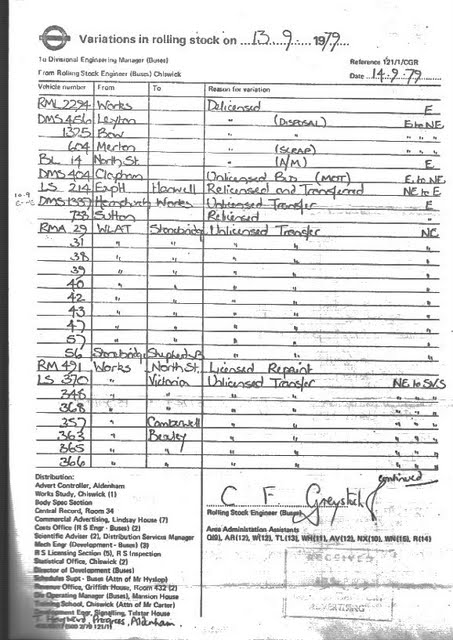 Variations in rolling stock on 13.9. 1979
To Divisional Engineering Manager (Buses)
Reference 121/1/CGR
From Rolling Stock Engineer (Buses) Chiswick
Date 14.9.79
Vehicle number From To Reason for variation
RML 2294 Works Delicensed E
DMS 456 Leyton " (DISPOSAL) E to NE
1325 Bow " " "
604 Merton " (SCRAP) " "
BL 14 North St. " (A/M) E
DMS 404 Clapham Unlicensed B.D (MOT) E. to NE
LS 214 ExptH Hanwell Relicensed and Transferred NE to E
10.9 DMS 1387 Hornchurch Works Unlicensed Transfer E
738 Sutton Relicensed "
RMA 29 WLAT Stonebridge Unlicensed Transfer NE
31 " " " " "
38 " " " " "
39 " " " " "
40 " " " " "
42 " " " " "
43 " " " " "
47 " " " " "
57 " " " " "
56 Stonebridge Shepherds B " " "
RM 491 Works North St. Licensed Repaint
LS 370 " Victoria Unlicensed Transfer NE to SVS
348 " " " " " " "
368 " " " " " " "
357 " Camberwell " " " " "
363 " Bexley " " " " "
365 " " " " " " "
366 " " " " " " "
continued
Distribution:
Advert Controller, Aldenham
Works Study, Chiswick (1)
Body Spec Section
Central Record, Room 34
Commercial Advertising, Lindsay House (7)
Costs Office (R S Engr - Buses) (2)
Scientific Adviser (2), Distribution Services Manager
Mech Engr (Development - Buses) (3)
R S Licensing Section (5), R S Inspection
Statistical Office, Chiswick (2)
Director of Development (Buses)
Schedules Supt - Buses (Attn of Mr Hyslop)
Revenue Office, Griffith House, Room 432 (2)
Operating Manager (Buses), Mansion House
Training School, Chiswick (Attn of Mr Carter)
Engr, Signalling, Telstar House
Progress, Aldenham.
C F Greystock
Rolling Stock Engineer (Buses)
Area Administration Assistants
Q(9), AR(12), W(12), TL(13), WH(11), AV(12), NX(10), WN(15), R(14)
RECEIVED
ADVERTISING